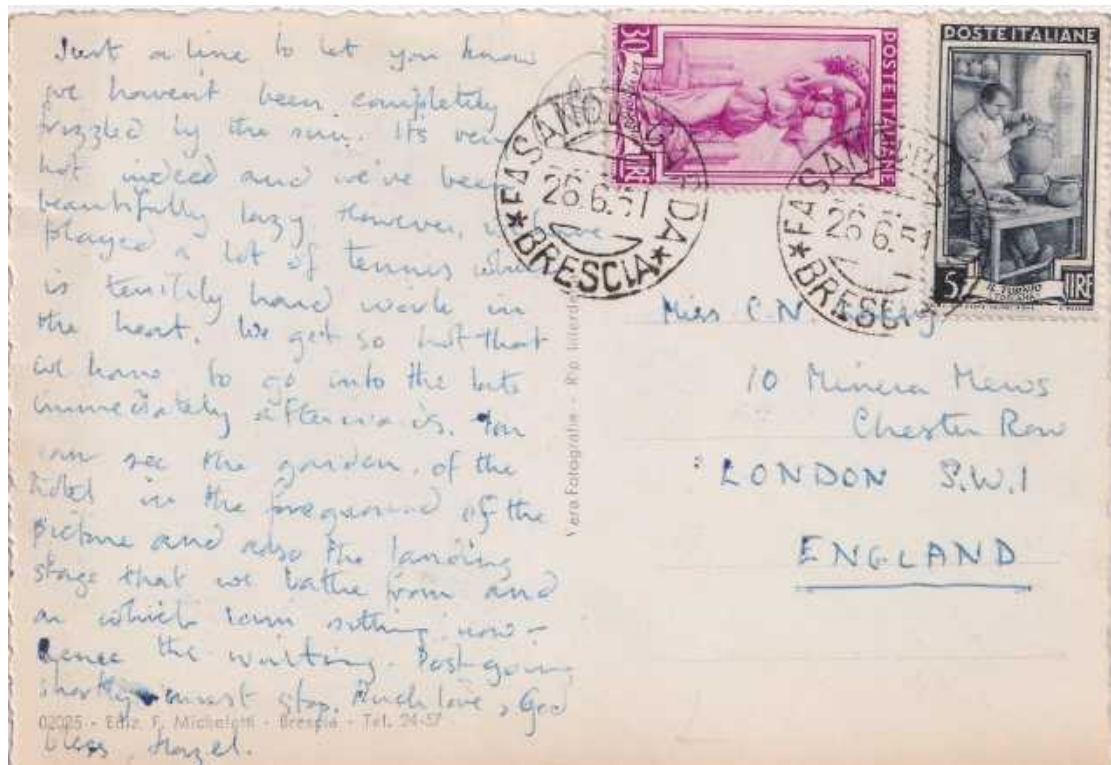 Just a line to let you know
we havent been completely
frizzled by the sun. Its very
hot indeed and we've been
beautifully lazy. However, we have
played a lot of tennis which
is terribly hard work in
the heat. We get so hot that
we have to go into the lake
immediately afterwards. You
can see the garden of the
hotel in the foreground of the
picture and also the landing
stage that we bathe from and
on which I am sitting now -
hence the writing. Post going
shortly must stop. Much love, God
bless, Hazel.
02025 - Ediz. F. Micheletti - Brescia - Tel. 24-57
Vera Fotografia - Rip. interdetta
30 LIRE
POSTE ITALIANE
POSTE ITALIANE
5 LIRE
IL TORNIO
(TOSCANA)
FASANO DI GARDA
26.6.51
*BRESCIA*
FASANO
26 6.51
*BRESCIA
Miss C.N.
10 Minera Mews
Chester Row
LONDON S.W.1
ENGLAND